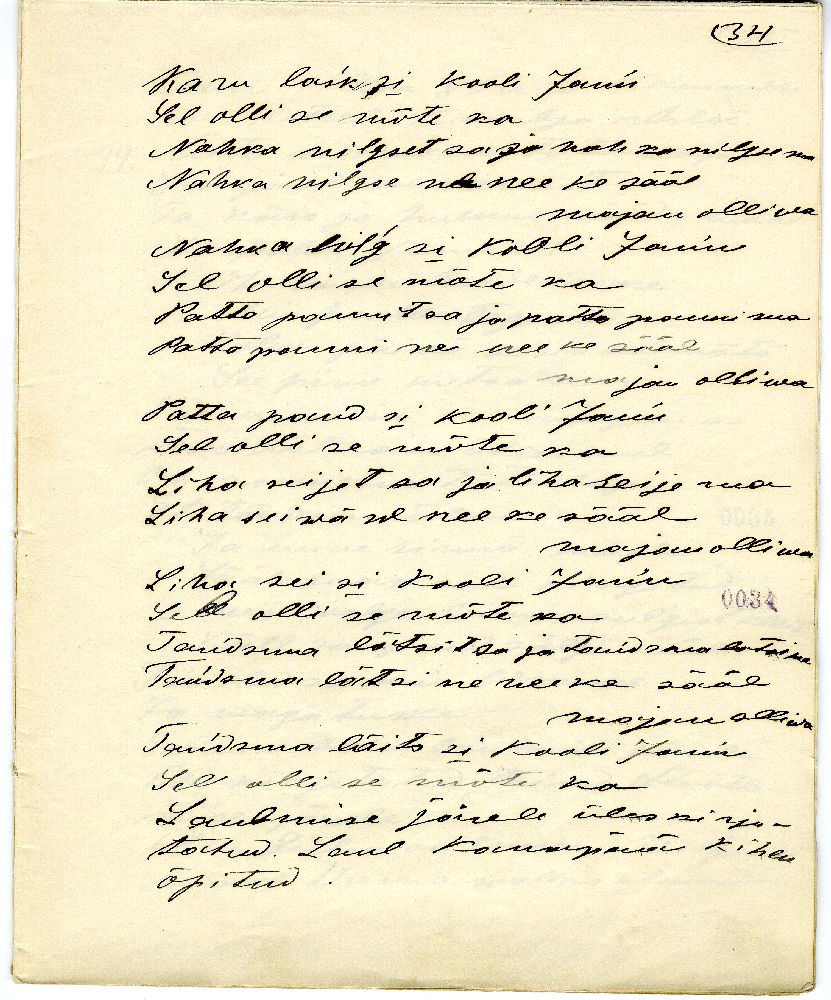 34
Karu lask si Kooli Jaań
Sel olli se mõte ka
Nahka nilgset sa ja nahka nilgse ma
Nahka nilgse ne nee ke sääl
majan olliwa
Nahka nilg si Kooli Jaan
Sel olli se mõte ka
Patta pannit sa ja patta panni ma
Patta panni ne nee ke sääl
majan olliwa
Patta pand si kooli Jaan
Sel olli se mõte ka
Liha seijet sa ja liha seije ma
Liha seiwä ne nee ke sääl
majan olliwa
Liha sei si kooli Jaan
0034
Sell olli se mõte ka
Tandsma lätsit sa ja tandsma lätsi ma
Tandsma lätsi ne nee ke sääl
majan olliwa
Tandsma läits si kooli Jaan
Sel olli se mõte ka
Laulmise järele üles kirju-
tatud. Laul
õpitud.